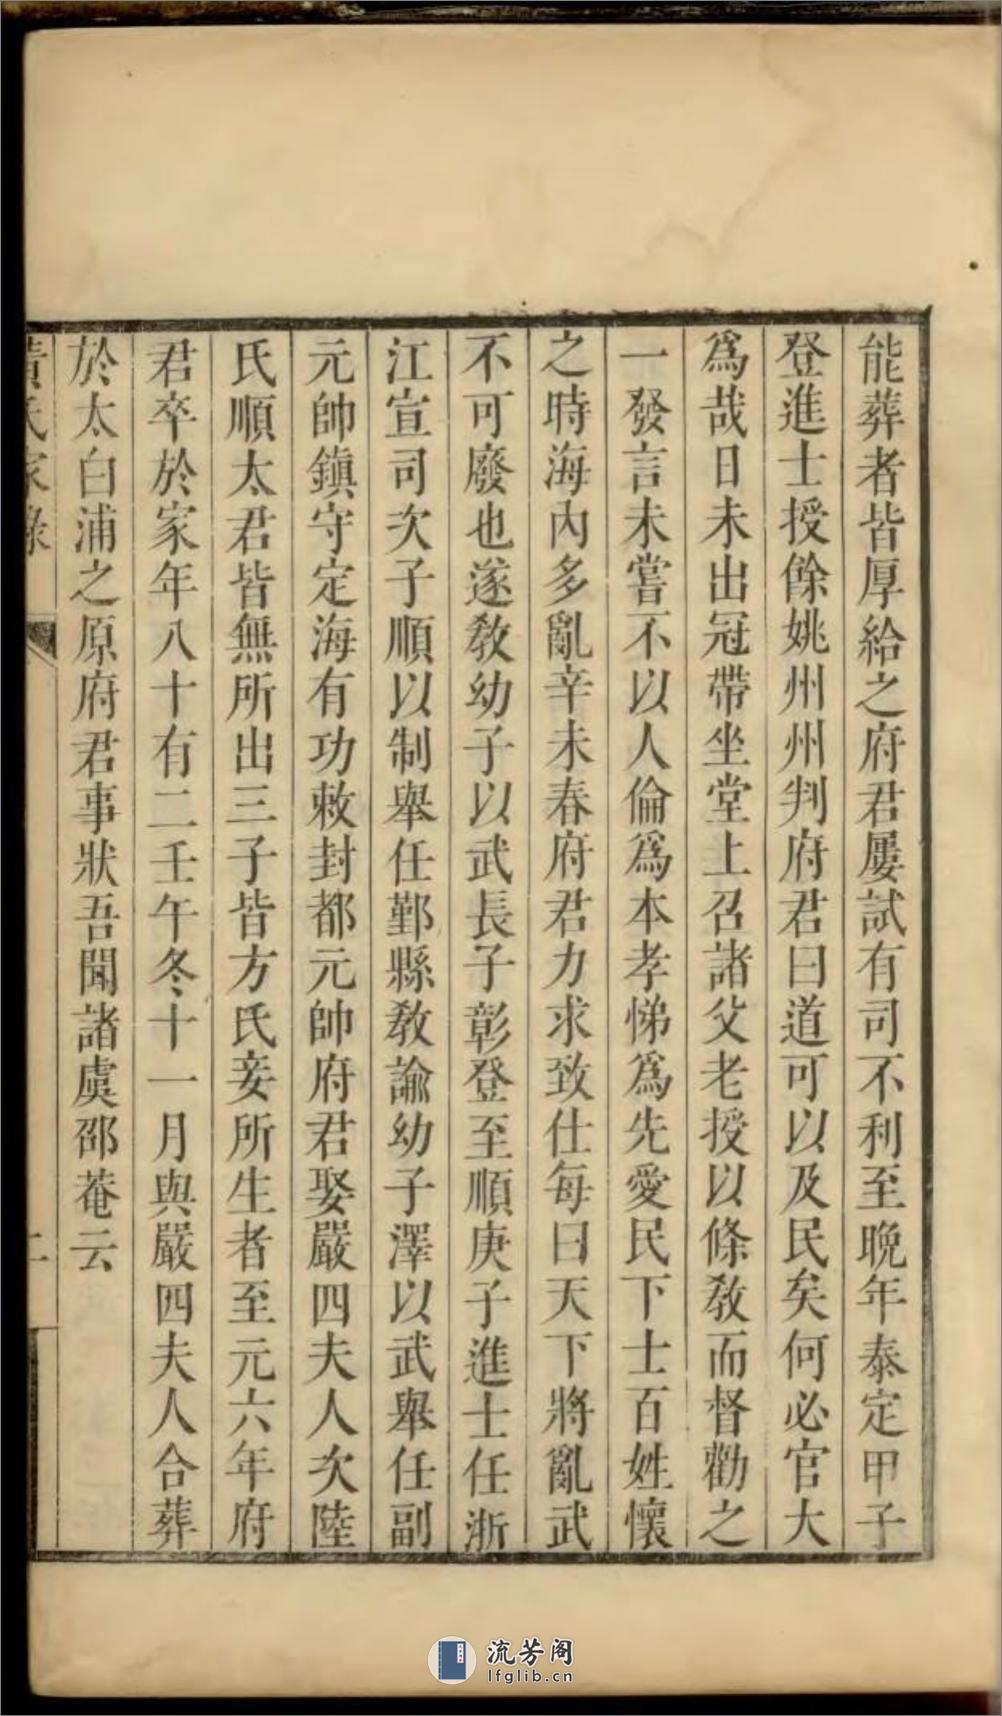 能葬者皆厚給之府君屢試有司不利至晩年泰定甲子
登進士授餘姚州州判府君曰道可以及民矣何必官大
爲哉日未出冠帶坐堂上召諸父老授以條教而督勸之
一發言未嘗不以人倫爲本孝悌爲先愛民下士百姓懷
之時海內多亂辛未春府君力求致仕每曰天下將亂武
不可廢也遂教幼子以武長子彰登至順庚子進士任浙
江宣司次子順以制舉任鄞縣教諭幼子澤以武舉任副
元帥鎮守定海有功敕封都元帥府君娶嚴四夫人次陸
氏順太君皆無所出三子皆方氏妾所生者至元六年府
君卒於家年八十有二壬午冬十一月與嚴四夫人合葬
於太白浦之原府君事狀吾聞諸虞邵菴云
黃氏家錄
二
流芳阁
lfglib.cn